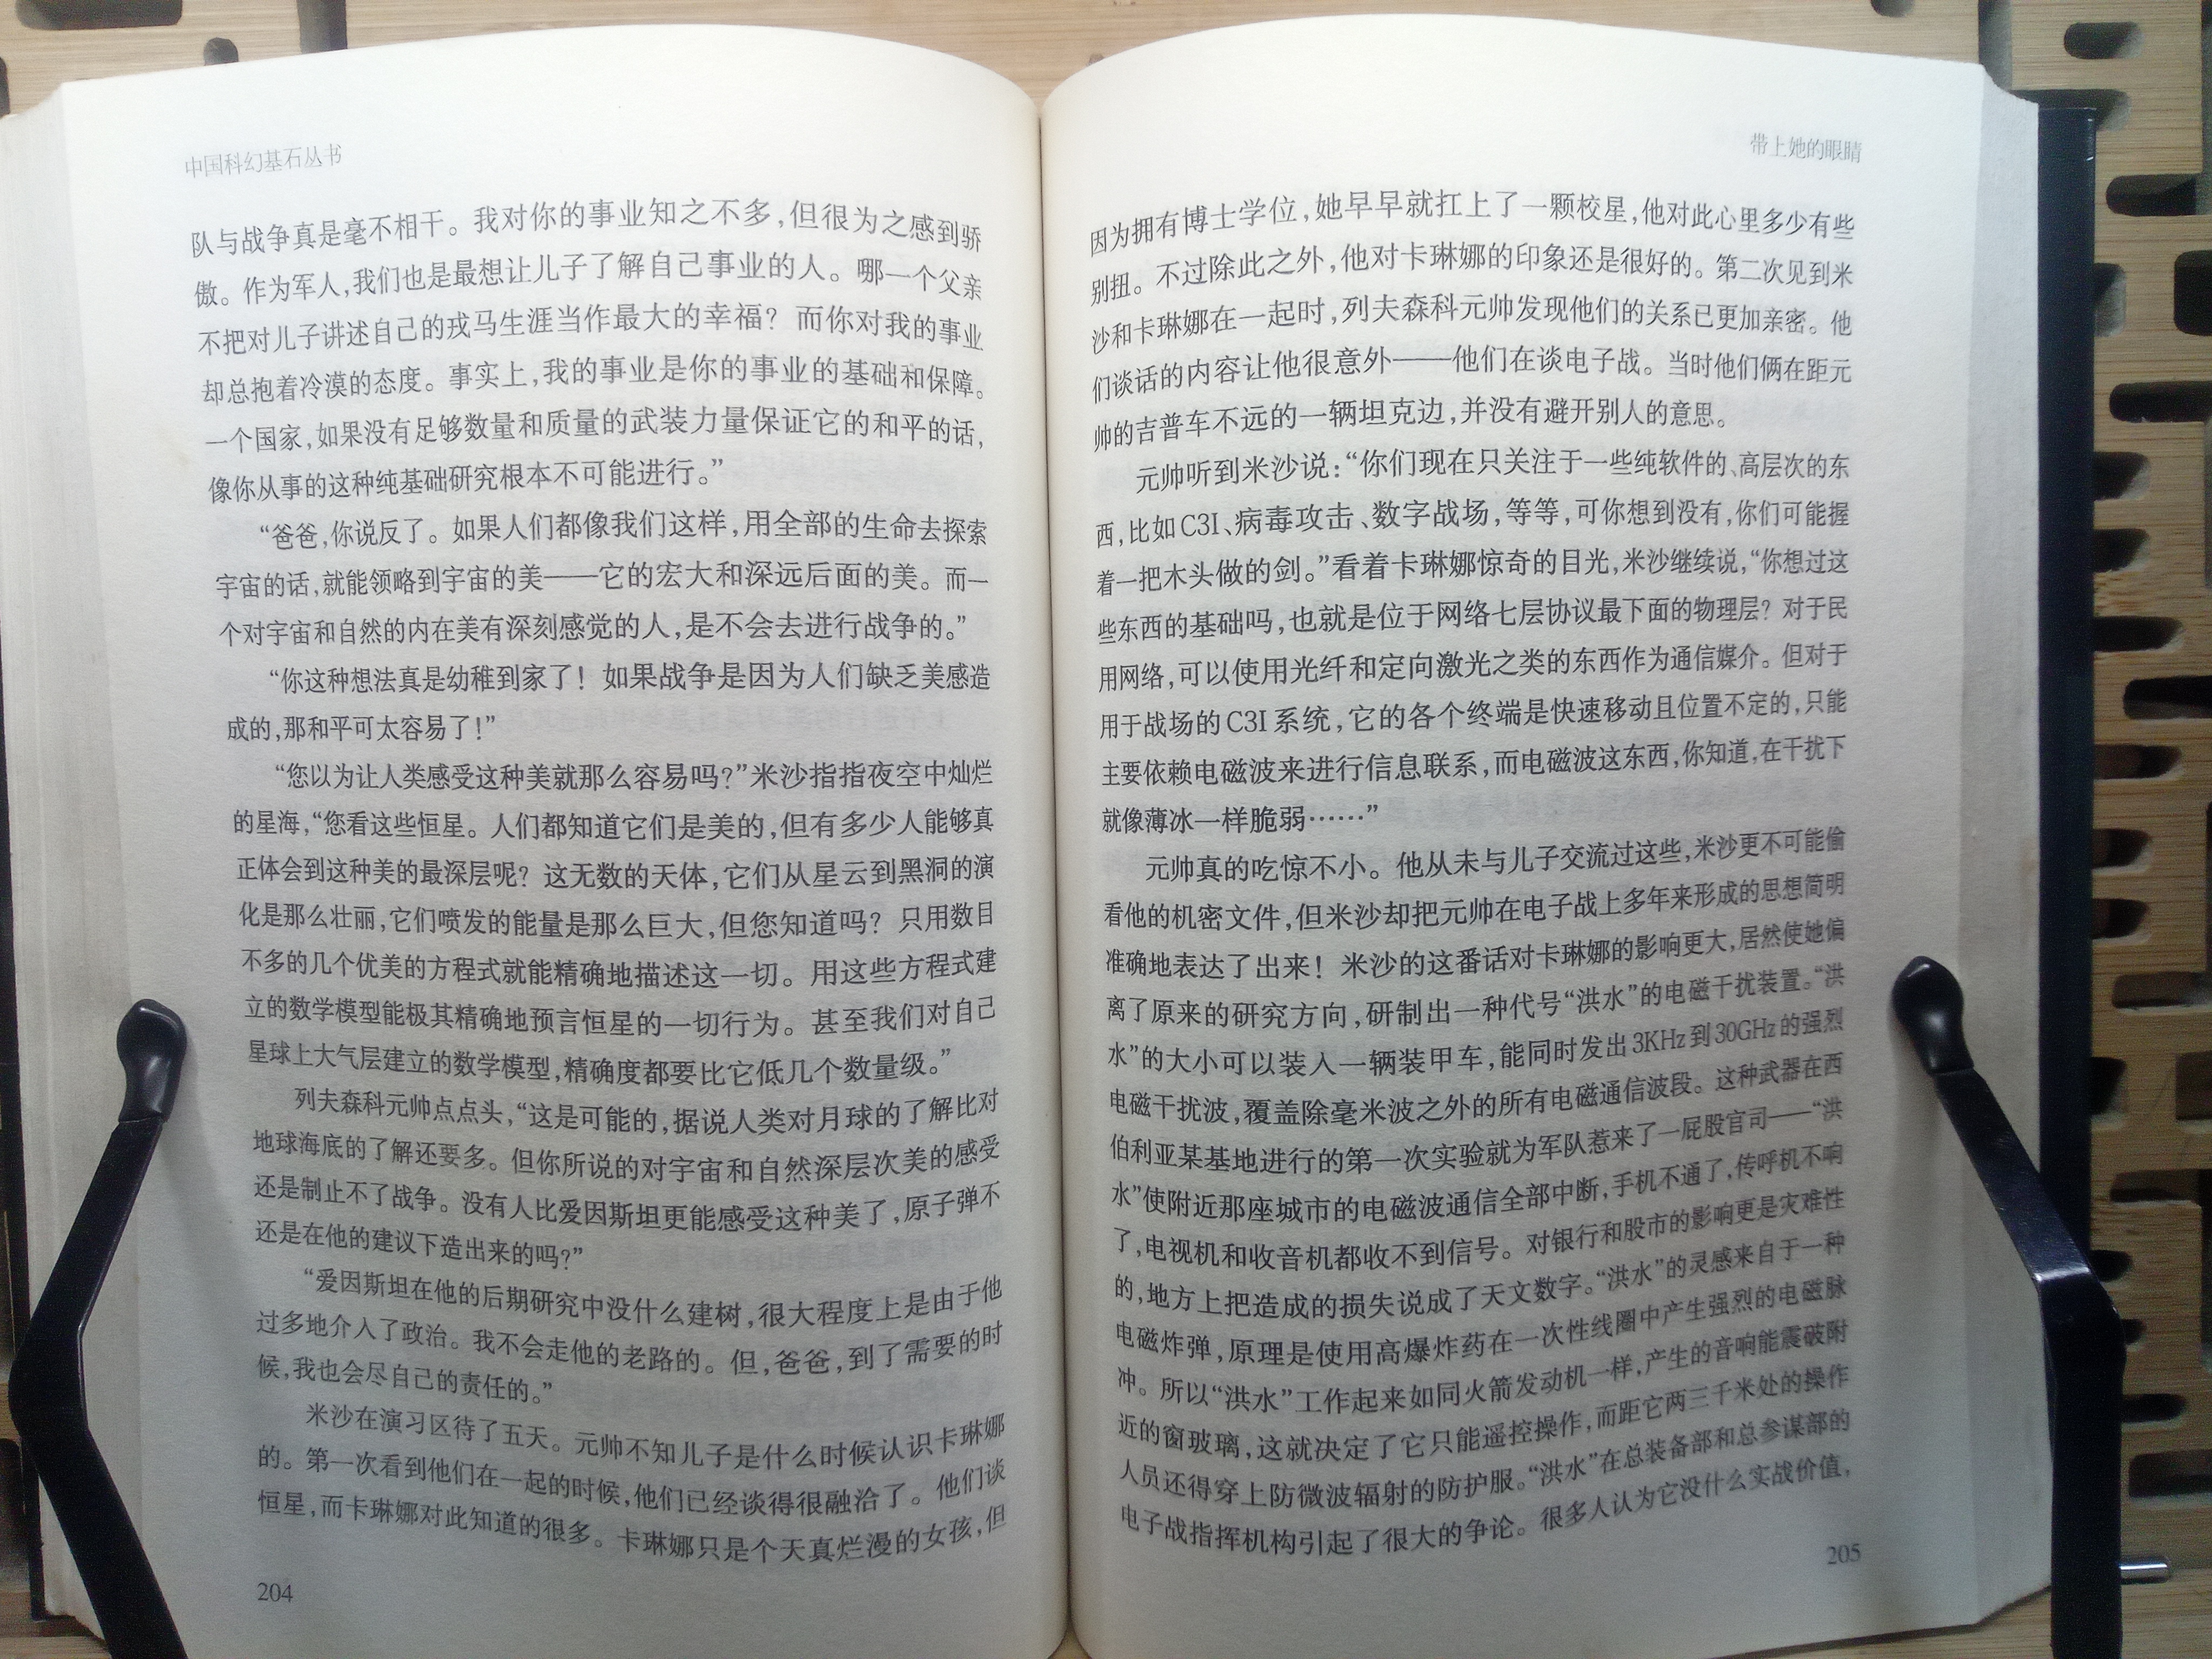 中国科幻基石丛书
队与战争真是毫不相干。我对你的事业知之不多,但很为之感到骄
傲。作为军人,我们也是最想让儿子了解自己事业的人。哪一个父亲
不把对儿子讲述自己的戎马生涯当作最大的幸福？而你对我的事业
却总抱着冷漠的态度。事实上,我的事业是你的事业的基础和保障。
一个国家,如果没有足够数量和质量的武装力量保证它的和平的话,
像你从事的这种纯基础研究根本不可能进行。”
“爸爸,你说反了。如果人们都像我们这样,用全部的生命去探索
宇宙的话,就能领略到宇宙的美——它的宏大和深远后面的美。而一
个对宇宙和自然的内在美有深刻感觉的人,是不会去进行战争的。”
“你这种想法真是幼稚到家了！如果战争是因为人们缺乏美感造
成的,那和平可太容易了！”
“您以为让人类感受这种美就那么容易吗？”米沙指指夜空中灿烂
的星海,“您看这些恒星。人们都知道它们是美的,但有多少人能够真
正体会到这种美的最深层呢？这无数的天体,它们从星云到黑洞的演
化是那么壮丽,它们喷发的能量是那么巨大,但您知道吗？只用数目
不多的几个优美的方程式就能精确地描述这一切。用这些方程式建
立的数学模型能极其精确地预言恒星的一切行为。甚至我们对自己
星球上大气层建立的数学模型,精确度都要比它低几个数量级。”
列夫森科元帅点点头,“这是可能的,据说人类对月球的了解比对
地球海底的了解还要多。但你所说的对宇宙和自然深层次美的感受
还是制止不了战争。没有人比爱因斯坦更能感受这种美了,原子弹不
还是在他的建议下造出来的吗？”
“爱因斯坦在他的后期研究中没什么建树,很大程度上是由于他
过多地介入了政治。我不会走他的老路的。但,爸爸,到了需要的时
候,我也会尽自己的责任的。”
米沙在演习区待了五天。元帅不知儿子是什么时候认识卡琳娜
的。第一次看到他们在一起的时候,他们已经谈得很融洽了。他们谈
恒星,而卡琳娜对此知道的很多。卡琳娜只是个天真烂漫的女孩,但
204
带上她的眼睛
因为拥有博士学位,她早早就扛上了一颗校星,他对此心里多少有些
别扭。不过除此之外,他对卡琳娜的印象还是很好的。第二次见到米
沙和卡琳娜在一起时,列夫森科元帅发现他们的关系已更加亲密。他
们谈话的内容让他很意外——他们在谈电子战。当时他们俩在距元
帅的吉普车不远的一辆坦克边,并没有避开别人的意思。
元帅听到米沙说：“你们现在只关注于一些纯软件的、高层次的东
西,比如C3I、病毒攻击、数字战场,等等,可你想到没有,你们可能握
着一把木头做的剑。”看着卡琳娜惊奇的目光,米沙继续说,“你想过这
些东西的基础吗,也就是位于网络七层协议最下面的物理层？对于民
用网络,可以使用光纤和定向激光之类的东西作为通信媒介。但对于
用于战场的C3I系统,它的各个终端是快速移动且位置不定的,只能
主要依赖电磁波来进行信息联系,而电磁波这东西,你知道,在干扰下
就像薄冰一样脆弱……”
元帅真的吃惊不小。他从未与儿子交流过这些,米沙更不可能偷
看他的机密文件,但米沙却把元帅在电子战上多年来形成的思想简明
准确地表达了出来！米沙的这番话对卡琳娜的影响更大,居然使她偏
离了原来的研究方向,研制出一种代号“洪水”的电磁干扰装置。“洪
水”的大小可以装入一辆装甲车,能同时发出3KHz到30GHz的强烈
电磁干扰波,覆盖除毫米波之外的所有电磁通信波段。这种武器在西
伯利亚某基地进行的第一次实验就为军队惹来了一屁股官司——“洪
水”使附近那座城市的电磁波通信全部中断,手机不通了,传呼机不响
了,电视机和收音机都收不到信号。对银行和股市的影响更是灾难性
的,地方上把造成的损失说成了天文数字。“洪水”的灵感来自于一种
电磁炸弹,原理是使用高爆炸药在一次性线圈中产生强烈的电磁脉
冲。所以“洪水”工作起来如同火箭发动机一样,产生的音响能震破附
近的窗玻璃,这就决定了它只能遥控操作,而距它两三千米处的操作
人员还得穿上防微波辐射的防护服。“洪水”在总装备部和总参谋部的
电子战指挥机构引起了很大的争论。很多人认为它没什么实战价值,
205